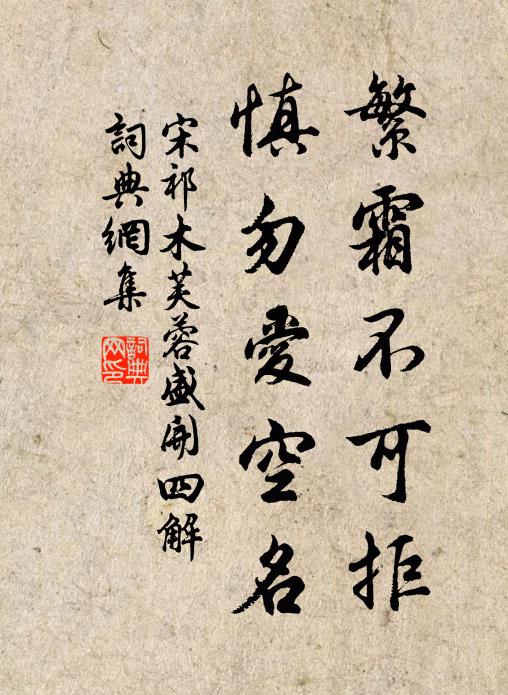 繁霜不可拒
慎勿愛空名
宋祁木芙蓉盛開四解
詞典網集
詞典網印